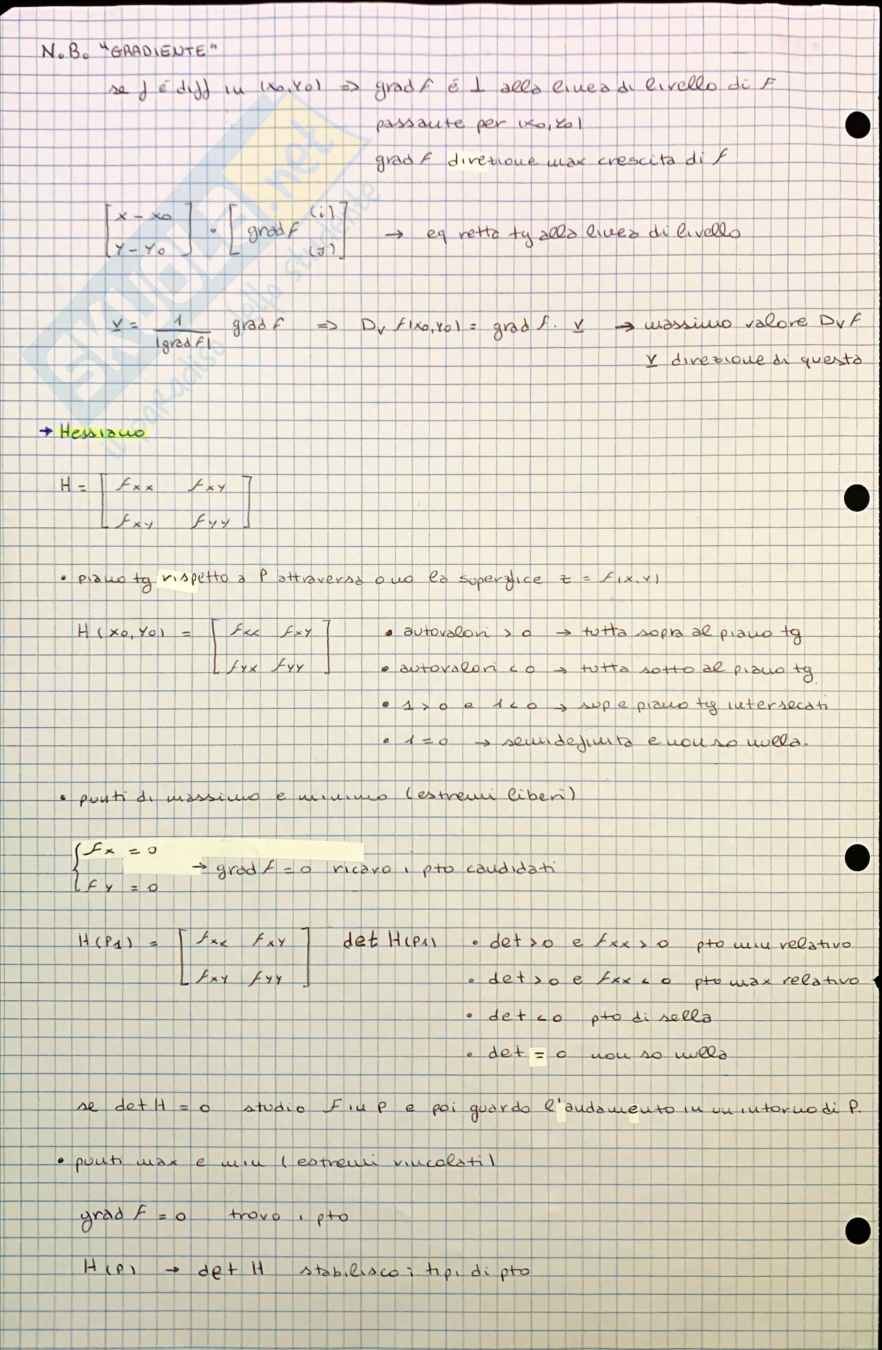 N.B. "GRADIENTE"
se f é diff in (x0,Y0) => grad F é ⊥ alla linea di livello di F
passante per (x0,Y0)
grad F direzione max crescita di f
[x - x0 / Y - Y0] · [grad F (i) / (J)] → eq retta tg alla linea di livello
v = 1/|grad F| grad F => Dv F(x0,Y0) = grad F · v → massimo valore Dv F
v direzione di questa
→ Hessiano
H = [Fxx Fxy
Fxy Fyy]
• piano tg rispetto a P attraversa o no la superfice z = F(x,Y)
H(x0,Y0) = [Fxx Fxy • autovalori > 0 → tutta sopra al piano tg
Fyx Fyy] • autovalori < 0 → tutta sotto al piano tg
• 1 > 0 e 1 < 0 → sup e piano tg intersecati
• 1 = 0 → semidefinita e non so nulla.
• punti di massimo e minimo (estremi liberi)
{Fx = 0
Fy = 0 → grad F = 0 ricavo i pto candidati
H(P1) = [Fxx Fxy det H(P1) • det > 0 e Fxx > 0 pto min relativo
Fxy Fyy] • det > 0 e Fxx < 0 pto max relativo
• det < 0 pto di sella
• det = 0 non so nulla
se det H = 0 studio F in P e poi guardo l'andamento in un intorno di P.
• punti max e min (estremi vincolati)
grad F = 0 trovo i pto
H(P) → det H stabilisco i tipi di pto
SKUOLA.net
il paradiso dello studente